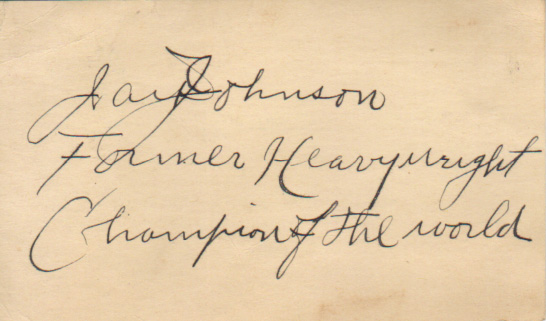 Jack Johnson
Former Heavyweight
Champion of the world